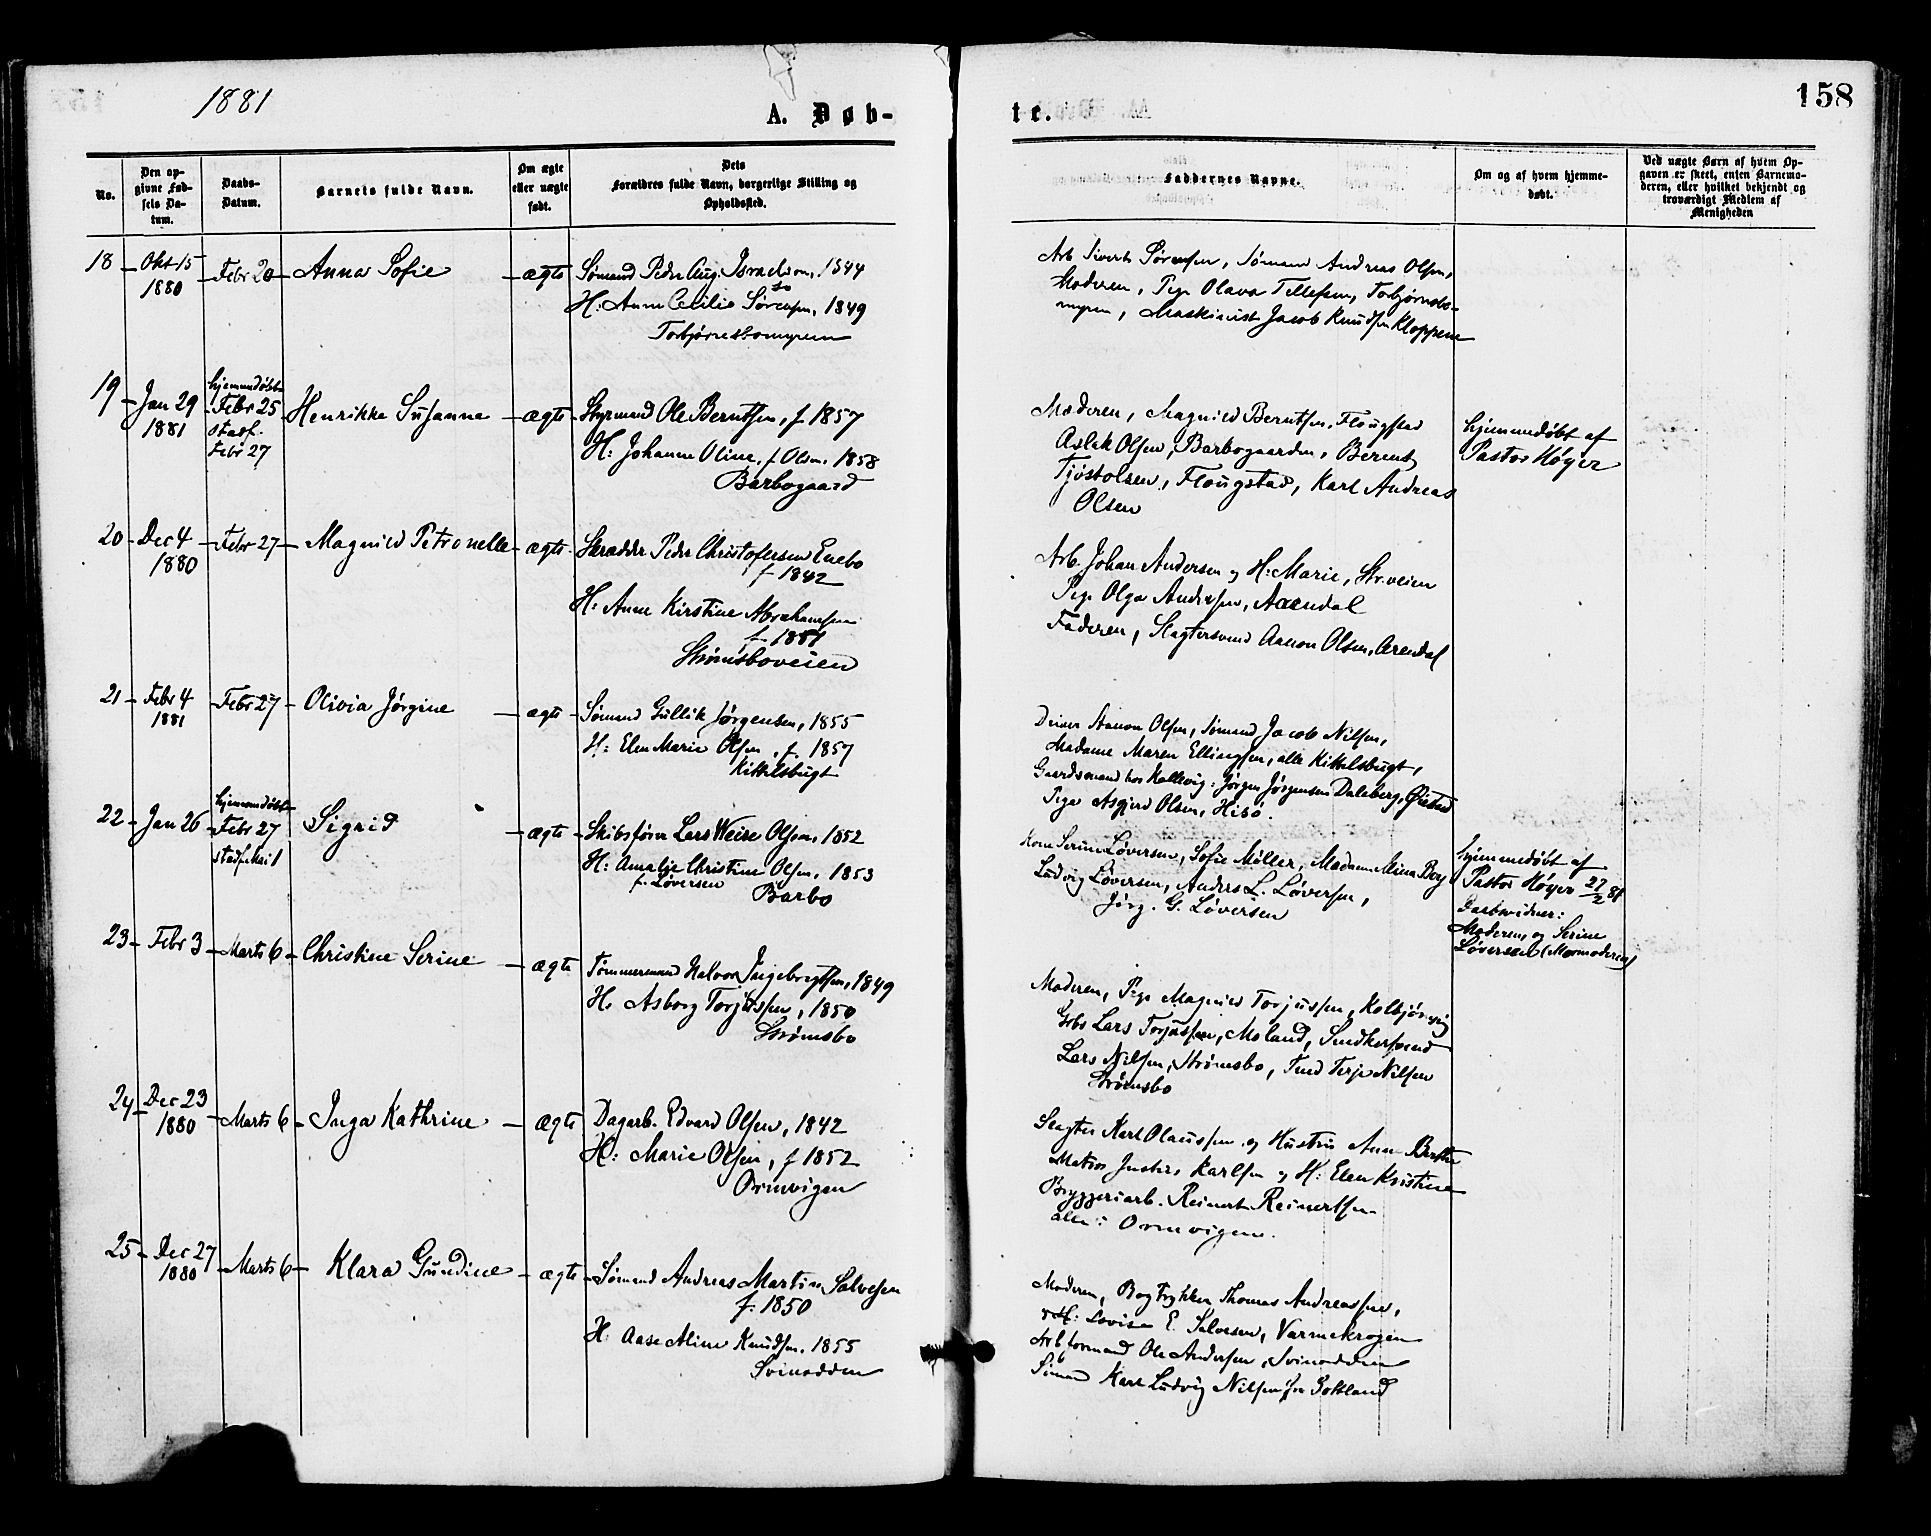 1881
A. Døb-
te.
158
No.
Den op-
givne Fød-
sels Da-
tum.
Daabs-
Datum.
Barnets fulde Navn.
Om ægte
eller uægte
født.
Dets
Forældres fulde Navn, borgerlige Stilling og
Opholdssted.
Faddernes Navne.
Om og af hvem hjemme-
døbt.
Ved uægte Børn af hvem Op-
gaven er skeet, enten Barnemo-
deren, eller hvilket bekjendt og
troværdigt Medlem af
Menigheden
18
Okt 15
1880
Febr 20
Anna Sofie
ægte
Sømand Peder Aug. Israelsen, 1844
H: Anne Cecilie Sørensen, 1849
Torbjørnsbomyren
Arb Sivert Sørensen, Sømand Andreas Olsen,
Moderen, Pige Olava Tellefsen, Torbjørnsbo-
myren, Maskinist Jacob Knudsen Kloppene
19
Jan 29
1881
hjemmedøbt
Febr 25
stadf.
Febr 27
Henrikke Susanne
ægte
Styrmand Ole Berntsen, f 1857
H: Johanne Oline f. Olsen. 1858
Barbogaard
Moderen, Magnild Berntsen, Flougstad
Aslak Olsen, Barbogaarden, Berent
Tjøstolsen, Flougstad, Karl Andreas
Olsen
hjemmedøbt af
Pastor Høyer
20
Dec 4
1880
Febr 27
Magnild Petronelle
ægte
Skrædder Peder Christofersen Enebo
f 1842
H: Anne Kirstine Abrahamsen
f. 1851
Strømsboveien
Arb. Johan Andersen og H: Marie, Str.veien
Pige Olga Andersen, Arendal
Faderen, Slagtersvend Aanon Olsen, Arendal
21
Febr 4
1881
Febr 27
Olivia Jørgine
ægte
Sømand Gullik Jørgensen, 1855
H: Elen Marie Olsen, f. 1857
Kittelsbugt
Driver Aanon Olsen, Sømand Jacob Nilsen,
Madame Maren Ellingsen, alle Kittelsbugt,
Gaardsmand hos Kallevig: Jørgen Jørgensen Daleberg, Øiestad
Pige Asgjerd Olsen, Hisø.
22
Jan 26
hjemmedøbt
Febr 27
stadf. Mai 1
Sigrid
ægte
Skibsfører Lars Weise Olsen, 1852
H: Amalie Christine Olsen, 1853
f. Løversen
Barbo
Kone Serine Løversen, Sofie Møller, Madam Mina Boy
Ludvig Løversen, Anders L. Løversen,
Jørg. G. Løversen
hjemmedøbt af
Pastor Høyer 27/2 81
Daabsvidner:
Moderen, og Serine
Løversen (Mormoderen)
23
Febr 3
Marts 6
Christine Serine
ægte
Tømmermand Halvor Ingebregtsen, 1849
H: Asborg Torjussen, 1850
Strømsbo
Moderen, Pige Magnild Torjussen, Kolbjørnsvig
Gbr Lars Torjussen, Moland, Snedkersvend
Lars Nilsen, Strømsbo, Terje Nilsen
Strømsbo
24
Dec 23
1880
Marts 6
Inga Kathrine
ægte
Dagarb. Edvard Olsen, 1842
H: Marie Olsen, f 1852
Ormvigen
Slagter Karl Olaussen og Hustru Anne Berthe
Matros Karlsen og H: Elen Kristine
Bryggeriarb. Reinert Reinertsen
alle: Ormvigen.
25
Dec 27
1880
Marts 6
Klara Gundine
ægte
Sømand Andreas Martin Salvesen
f. 1850
H: Aase Aline Knudsen. 1855
Svinodden
Moderen, Bogtrykker Thomas Andreassen,
og H: Lovise E. Salvesen, Varmekrogen
Arb formand Ole Andersen, Svinodden
Sømand Karl Ludvig Nilsen fra Gotland